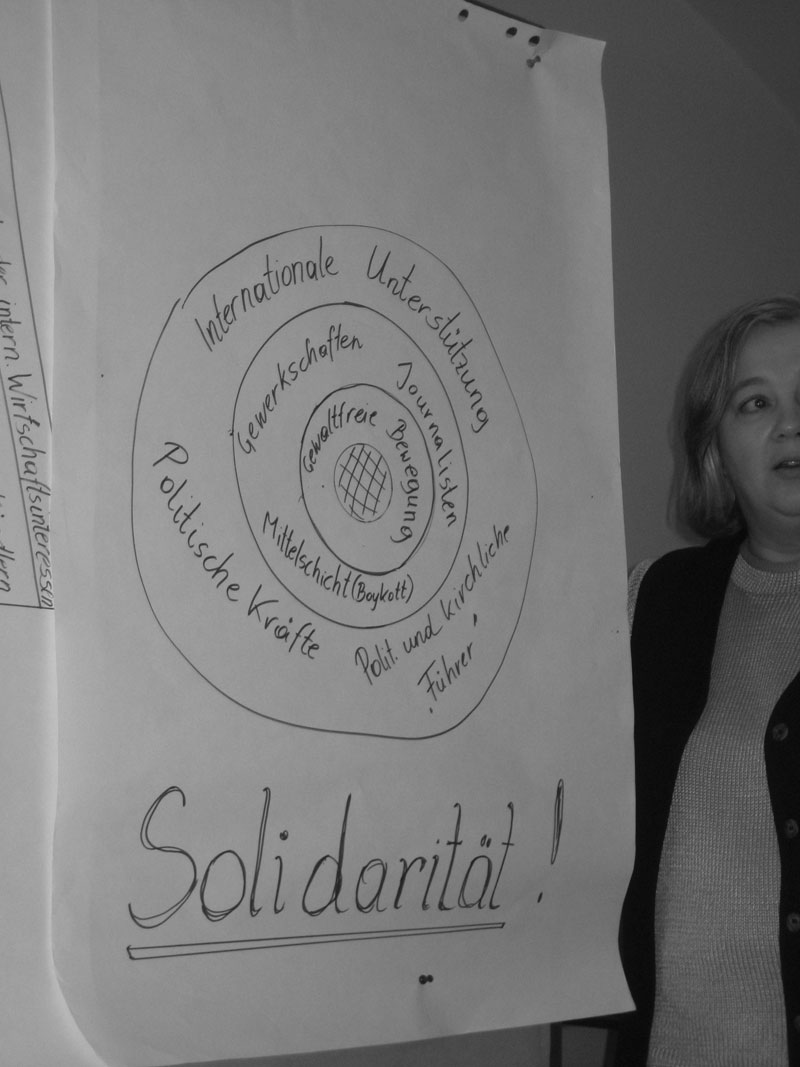 der intern. Wirtschaftsinteressen
Internationale Unterstützung
Gewerkschaften
Journalisten
Gewaltfreie Bewegung
Mittelschicht (Boykott)
Politische Kräfte
Polit. und kirchliche
'Führer'
Solidarität!